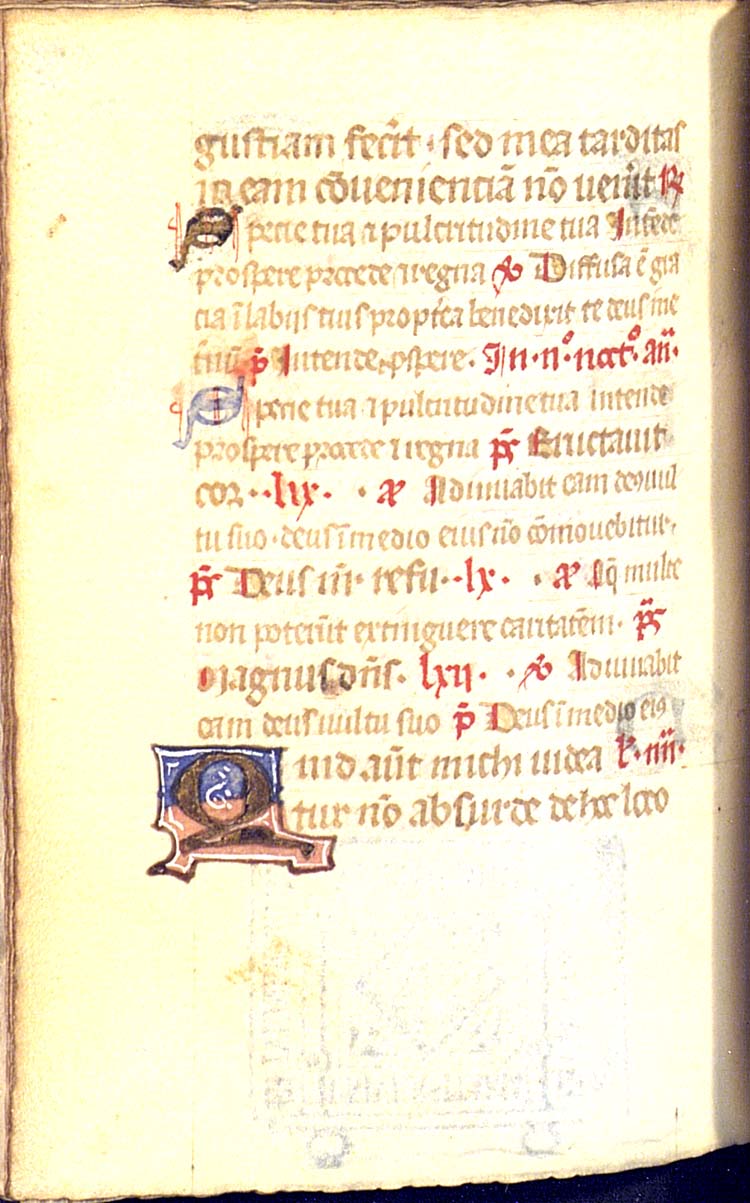 gustiam fecit · sed mea tarditas
in eam cōuenienciā nō uenit R
Specie tua ⁊ pulcritudine tua Intēde
prospere procede ⁊ regna ꝟ Diffusa ē gra
cia ī labijs tuis propťea benedixit te deus īne
ťnū p̄ Intende ꝓspere. In · ij° · noct° · an̄·
Specie tua ⁊ pulcritudine tua intende
prospere procede ⁊ regna p̄s Eructauit
cor · · lix · · a Adiuuabit eam deus uul
tu suo · deus ī medio eius nō cōmouebitur ·
p̄s Deus nr̄ · refu · · lx · · a Aq̄ multe
non poterūt extinguere caritatēm · p̄s
Magnus dn̄s · lxii · · ꝟ Adiuuabit
eam deus uultu suo p̄ Deus ī medio ei⁹
Quid aūt michi uidea l · iiii ·
tur nō absurde de hoc loco